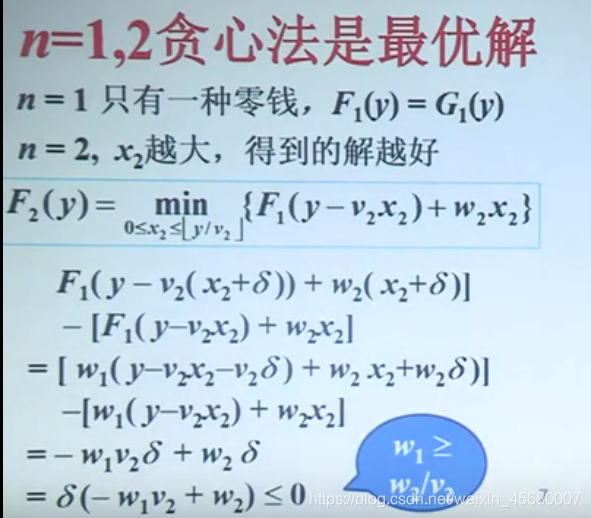 n=1,2贪心法是最优解
n = 1 只有一种零钱，F₁(y) = G₁(y)
n = 2, x₂越大，得到的解越好
F₂(y) = min {F₁(y − v₂x₂) + w₂x₂}
0≤x₂≤⌊y/v₂⌋
F₁( y − v₂( x₂+δ)) + w₂( x₂+δ)]
− [F₁( y−v₂x₂) + w₂x₂]
= [ w₁( y−v₂x₂−v₂δ ) + w₂ x₂+w₂δ)]
−[w₁( y−v₂x₂) + w₂x₂]
= − w₁v₂δ + w₂ δ
= δ(− w₁v₂ + w₂) ≤ 0
w₁ ≥
w₂/v₂
7
https://blog.csdn.net/weixin_45680007